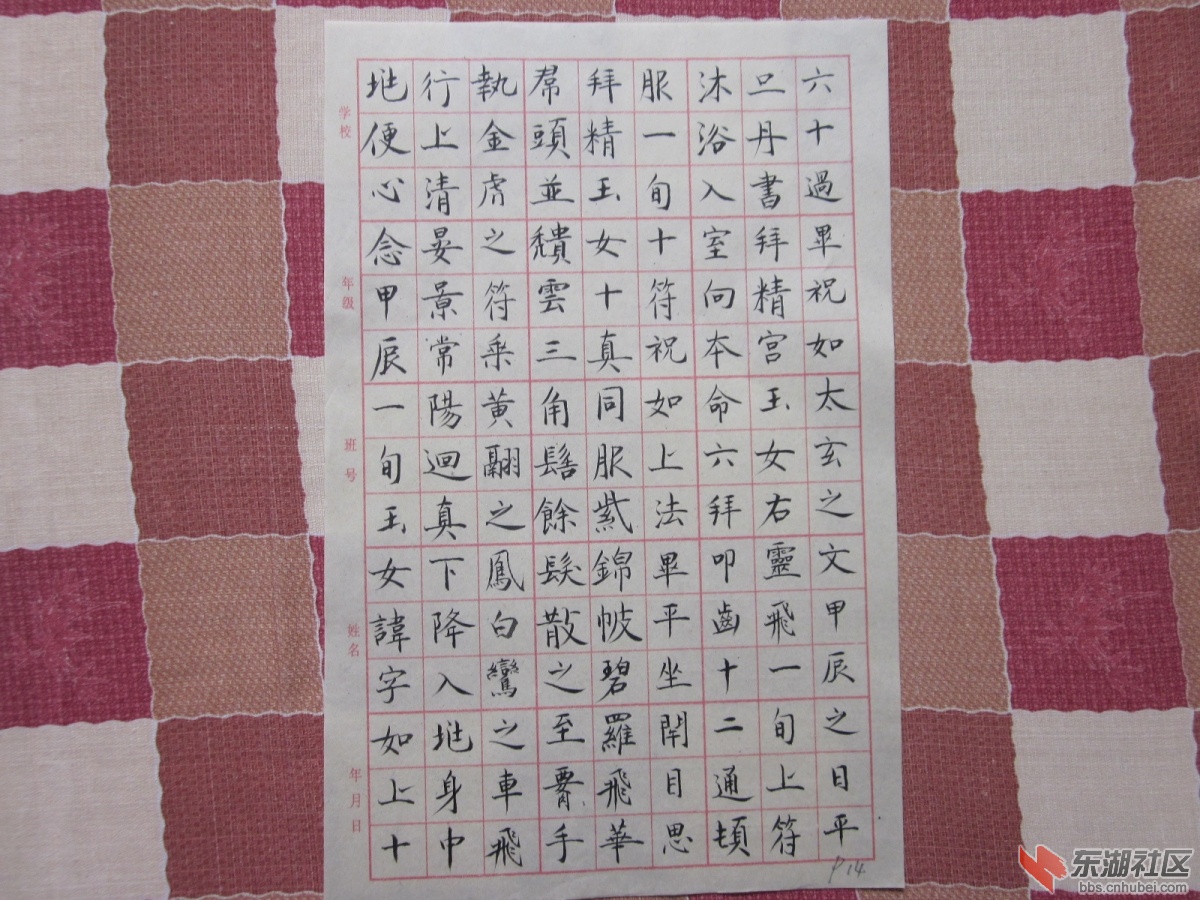 六十過畢祝如太玄之文甲辰之日平
旦丹書拜精宮玉女右靈飛一旬上符
沐浴入室向本命六拜叩齒十二通頓
服一旬十符祝如上法畢平坐閇目思
拜精玉女十真同服紫錦帔碧羅飛華
帬頭並穨雲三角髻餘髮散之至霄手
執金虎之符乘黃翮之鳳白鸞之車飛
行上清晏景常陽迴真下降入坔身中
坔便心念甲辰一旬玉女諱字如上十
学校
年级
班号
姓名
年月日
P14.
东湖社区
bbs.cnhubei.com